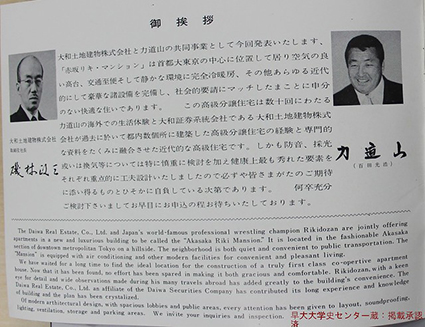 御挨拶
大和土地建物株式会社と力道山の共同事業として今回発表いたします、
「赤坂リキ・マンション」は首都大東京の中心に位置して居り空気の良
い高台、交通至便そして静かな環境に完全冷暖房、その他あらゆる近代
的にして豪華な諸設備を完備し、社会的要請にマッチしたまことに申分
のない快適な住いであります。 この高級分譲住宅は数十回にわたる
力道山の海外での生活体験と大和証券系統会である大和土地建物株式
会社が過去に於いて都内数個所に建築した高級分譲住宅の経験と専門的
な資料をたくみに融合させた近代的な高級住宅です。しかも防音、採光
或いは換気等については特に慎重に検討を加え健康上最も秀れた要素を
それぞれ重点的に工夫設計いたしましたので必ずや皆さまがたのご期待
に添い得るものとひそかに自負している次第であります。 何卒充分
ご検討下さいましてお早目にお申込の程お待ちいたしております。
大和土地建物株式会社
力道山
(百田光浩)
The Daiwa Real Estate, Co., Ltd. and Japan's world-famous professional wrestling champion Rikidozan are jointly offering
apartments in a new and luxurious building to be called the "Akasaka Riki Mansion." It is located in the fashionable Akasaka
section of downtown metropolitan Tokyo on a hillside. The neighborhood is both quiet and convenient to public transportation. The
"Mansion" is equipped with air conditioning and other modern facilities for convenient and pleasant living.
We have waited for a long time to find the ideal location for the construction of a truly first class co-opertive apartment
house. Now that it has been found, no effort has been spared in making it both gracious and comfortable. Rikidozan, with a keen
eye for detail and wide observations made during his many travels abroad has added greatly to the building's convenience. The
Daiwa Real Estate, Co., Ltd., an affiliate of the Daiwa Securities Company has contributed its long experience and knowledge
of building and the plan has been crystalized.
Of modern architectural design, with spacious lobbies and public areas, every attention has been given to layout, soundproofing,
lighting, ventilation, storage and parking areas. We invite your inquiries and inspection.
早大大学史センター蔵：掲載承認
済